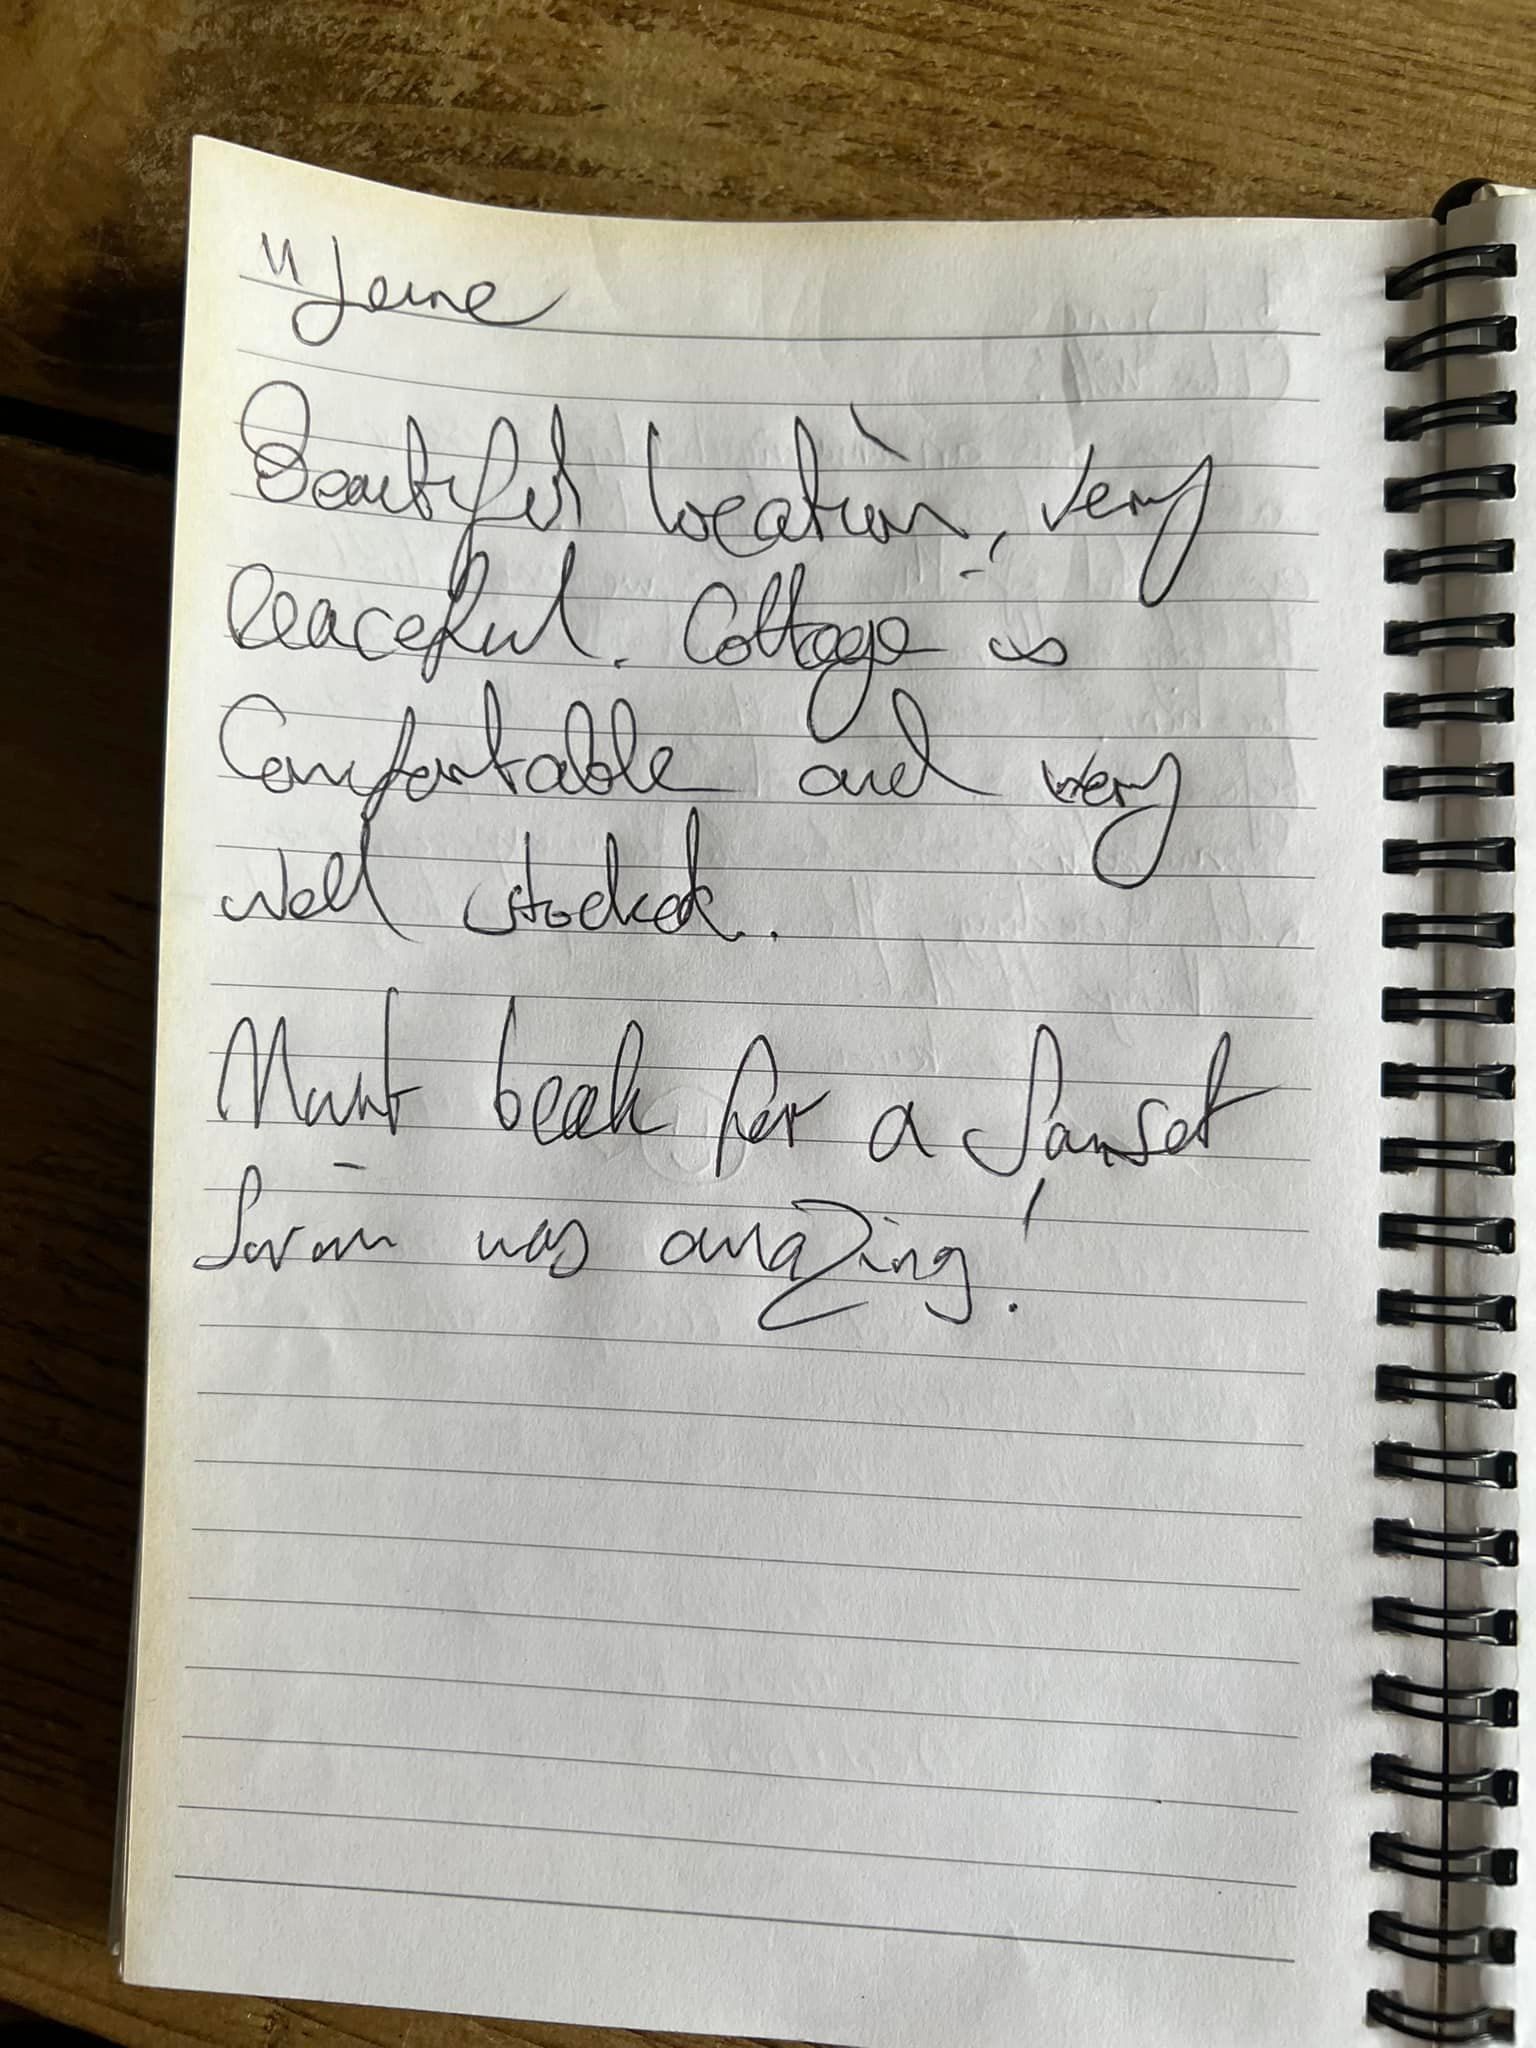 11 June
Beautiful location, very
Peaceful. Cottage is
Comfortable and very
well stocked.
for a Sunset
was amazing!